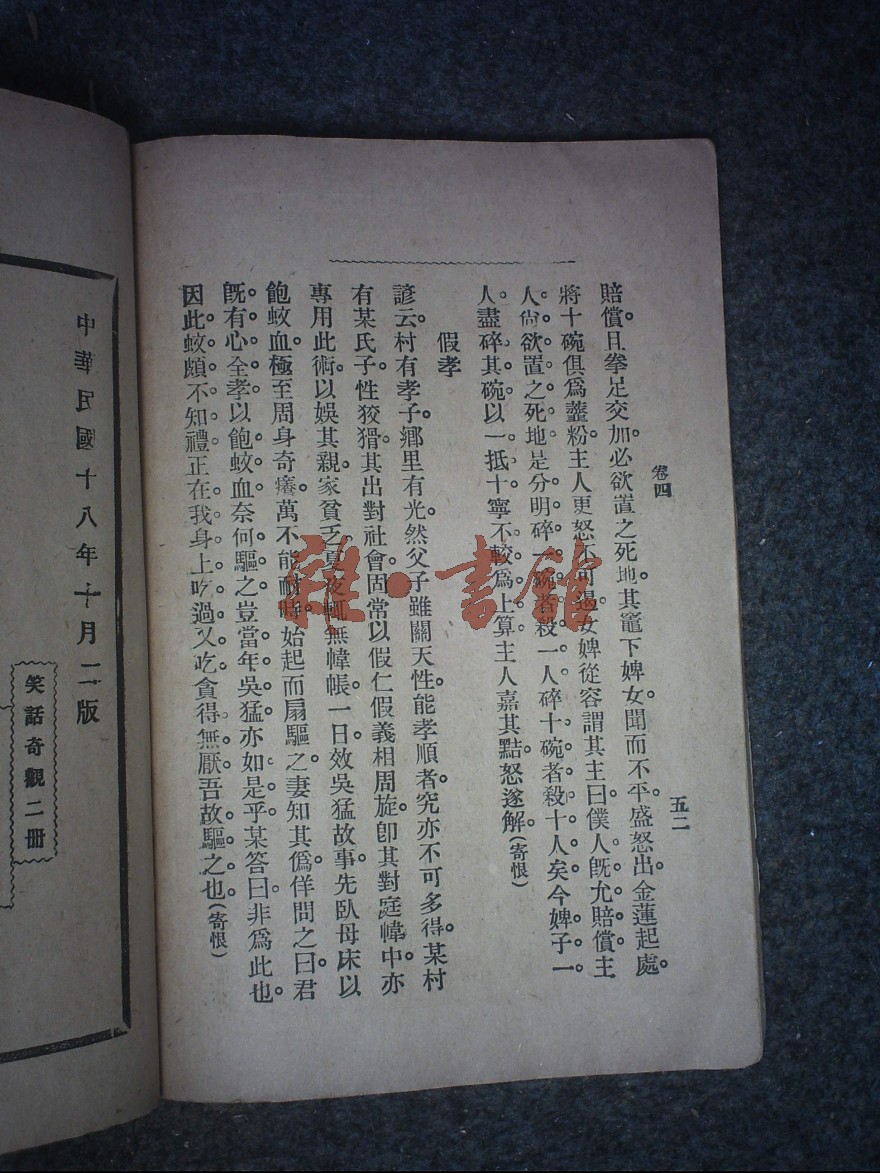 卷四
五二
賠償。且拳足交加必欲置之死地。其竈下婢女。聞而不平。盛怒出金蓮起處。
將十碗俱爲虀粉。主人更怒不可遏。女婢從容謂其主曰。僕人既允賠償。主
人。尙欲置之死地。是分明碎一碗者殺一人。碎十碗者殺十人矣。今婢子一
人。盡碎其碗。以一抵十。寧不較爲上算。主人嘉其黠。怒遂解。(寄恨)
假孝
諺云。村有孝子。鄉里有光。然父子雖關天性。能孝順者。究亦不可多得。某村
有某氏子。性狡猾。其出對社會。固常以假仁假義相周旋。卽其對庭幃中。亦
專用此術。以娛其親。家貧乏。夏夜輒無幃帳。一日效吳猛故事。先臥母床。以
飽蚊血。極至周身奇癢。萬不能耐時。始起而扇驅之。妻知其僞。佯問之曰。君
既有心全孝。以飽蚊血。奈何驅之。豈當年吳猛亦如是乎。某答曰。非爲此也。
因此蚊頗不知禮。正在我身上吃過又吃。貪得無厭。吾故驅之也。(寄恨)
中華民國十八年十月二版
笑話奇觀二册
雜·書館